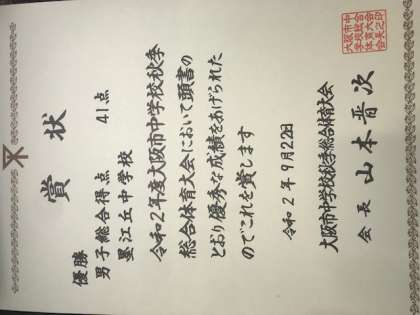 賞状
優勝
男子総合得点 41点
墨江丘中学校
令和2年度大阪市中学校秋季
総合体育大会において頭書の
とおり優秀な成績をあげられた
のでこれを賞します
令和2年9月22日
大阪市中学校秋季総合体育大会
会長 山本晋次